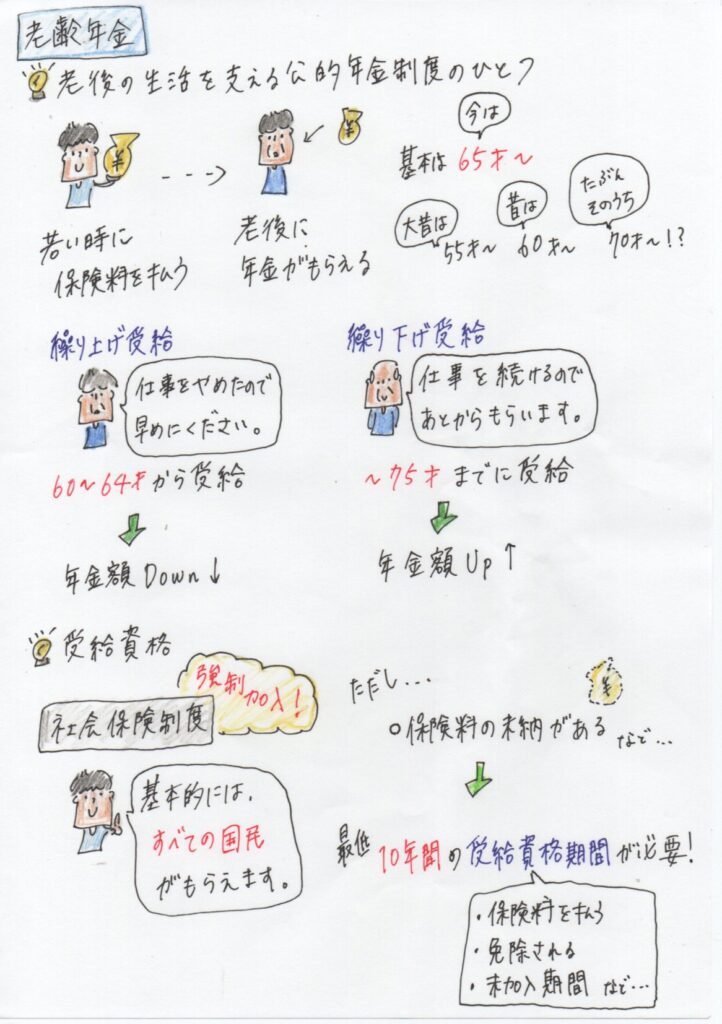 老齢年金
老後の生活を支える公的年金制度のひとつ
¥
¥
若い時に
保険料を払う
老後に
年金がもらえる
今は
基本は 65才～
大昔は
55才～
昔は
60才～
たぶん
そのうち
70才～!?
繰り上げ受給
仕事をやめたので
早めにください。
60～64才から受給
年金額Down↓
繰り下げ受給
仕事を続けるので
あとからもらいます。
～75才までに受給
年金額Up↑
受給資格
社会保険制度
強制加入!
基本的には、
すべての国民
がもらえます。
ただし...
¥
○保険料の未納がある など...
最低 10年間の受給資格期間が必要!
・保険料を払う
・免除される
・未加入期間 など...